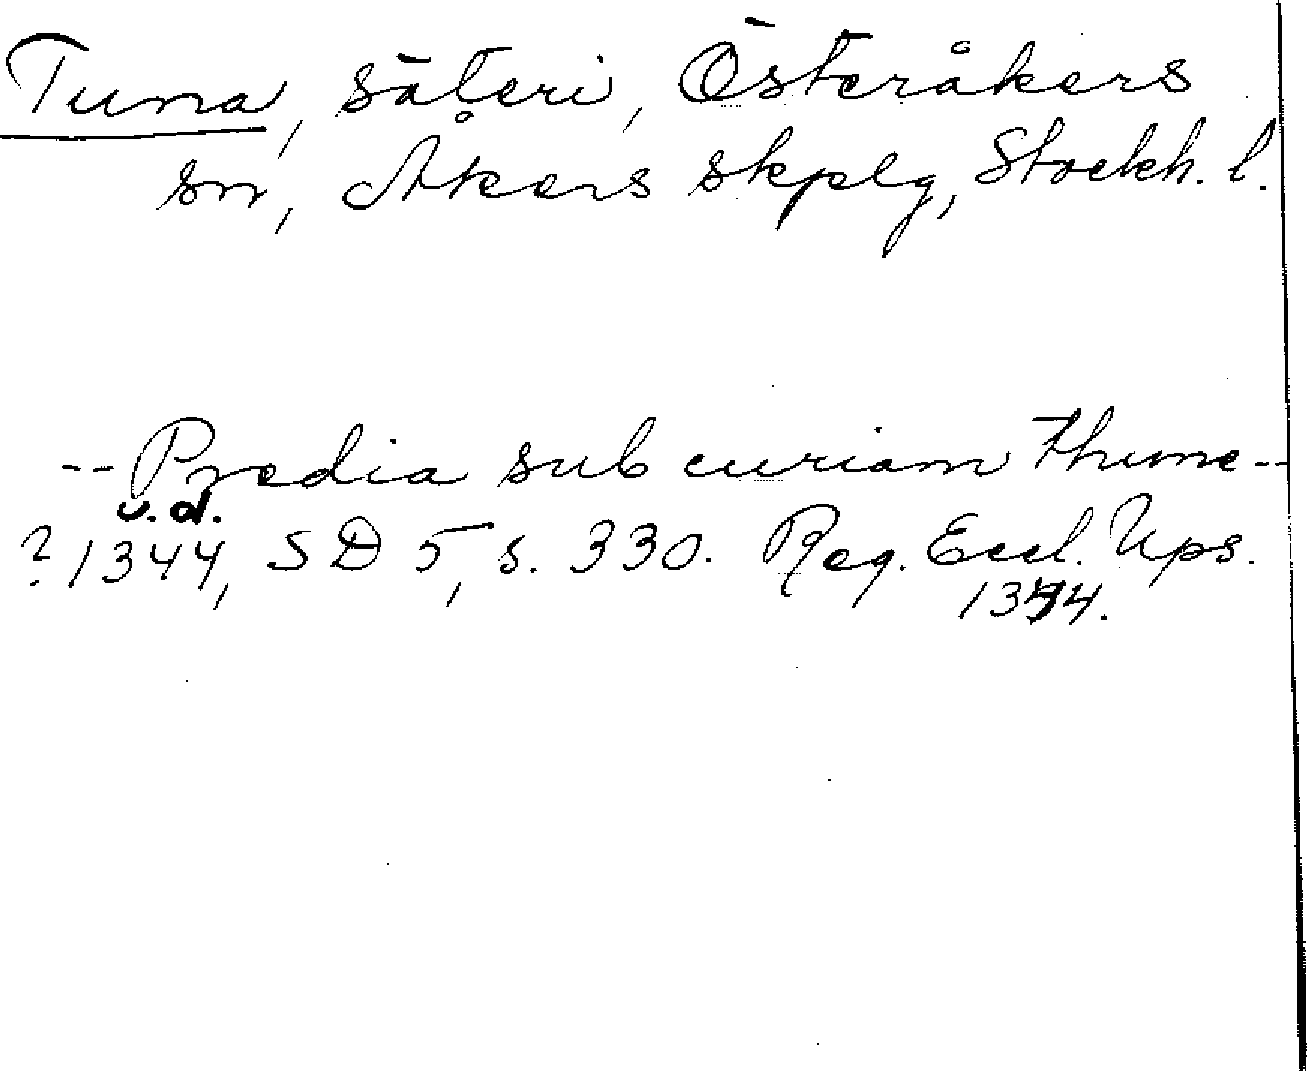 Tuna, säteri, Österåkers
sn, Åkers skplg, Stockh. l.
-- Predia sub curiam thune --
u. d.
? 1344, SD 5, s. 330. Reg. Eccl. Ups.
1344.